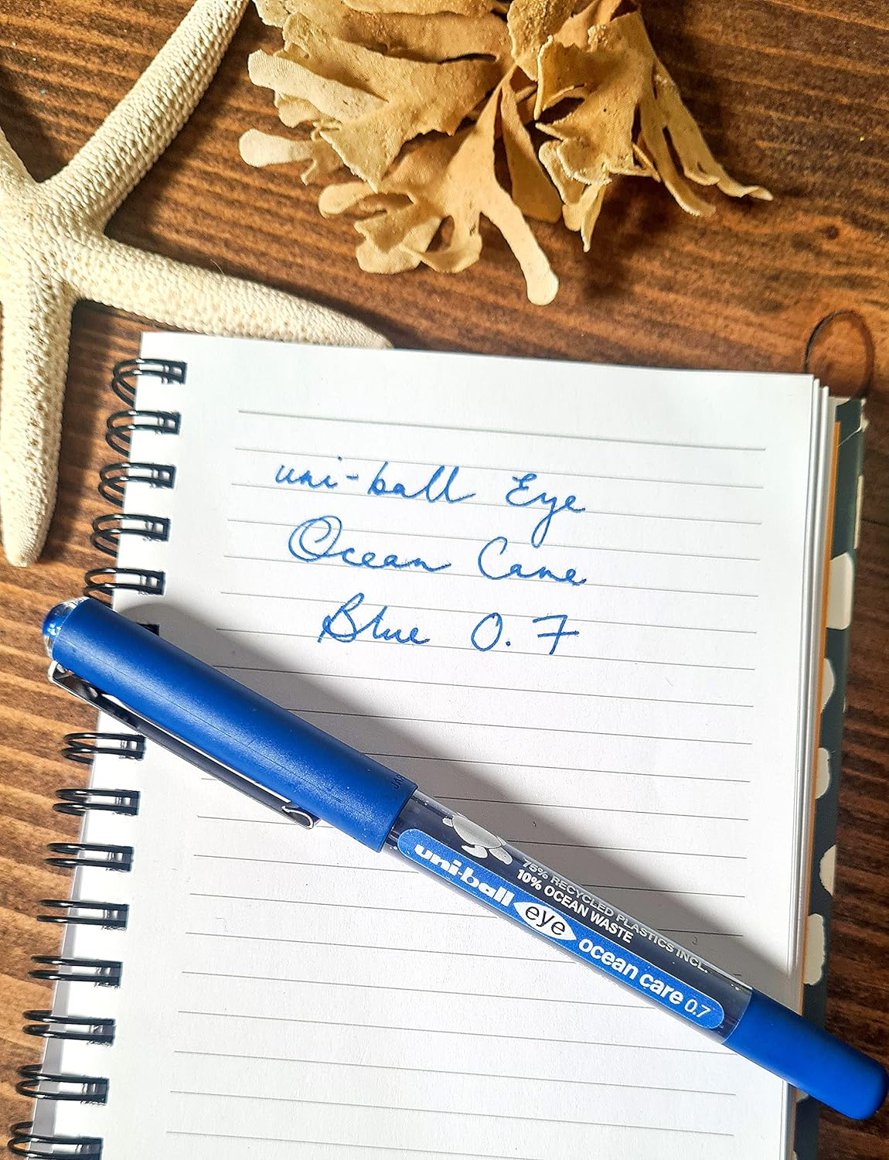 uni-ball Eye
Ocean Care
Blue 0.7
75% RECYCLED PLASTICS INCL.
10% OCEAN WASTE
uni-ball eye ocean care 0.7